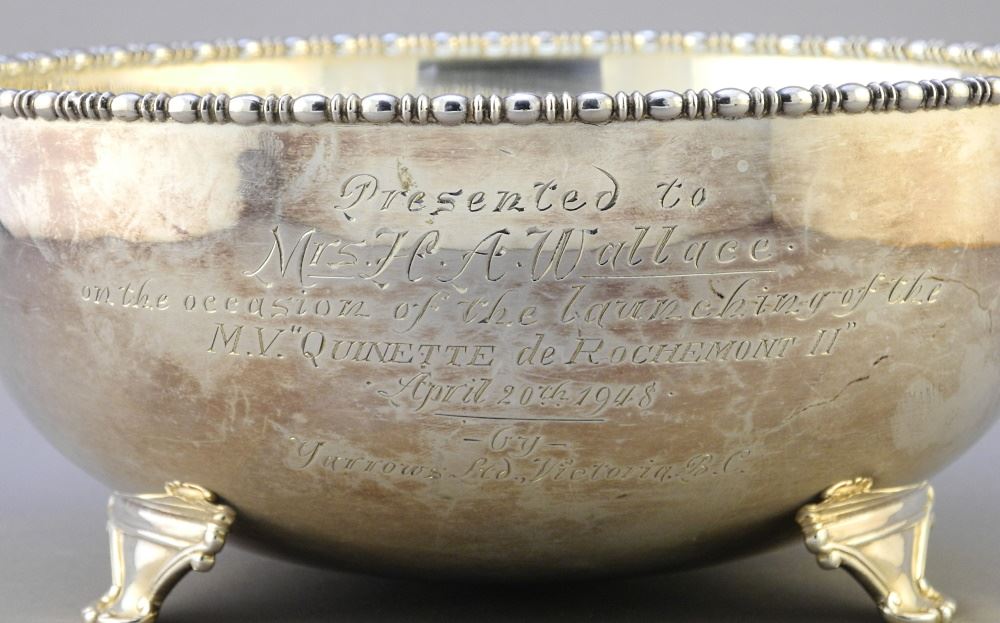 Presented to
Mrs. H. A. Wallace.
on the occasion of the launching of the
M.V. "QUINETTE de ROCHEMONT II"
April 20th 1948.
- by -
Yarrows Ltd., Victoria, B.C.